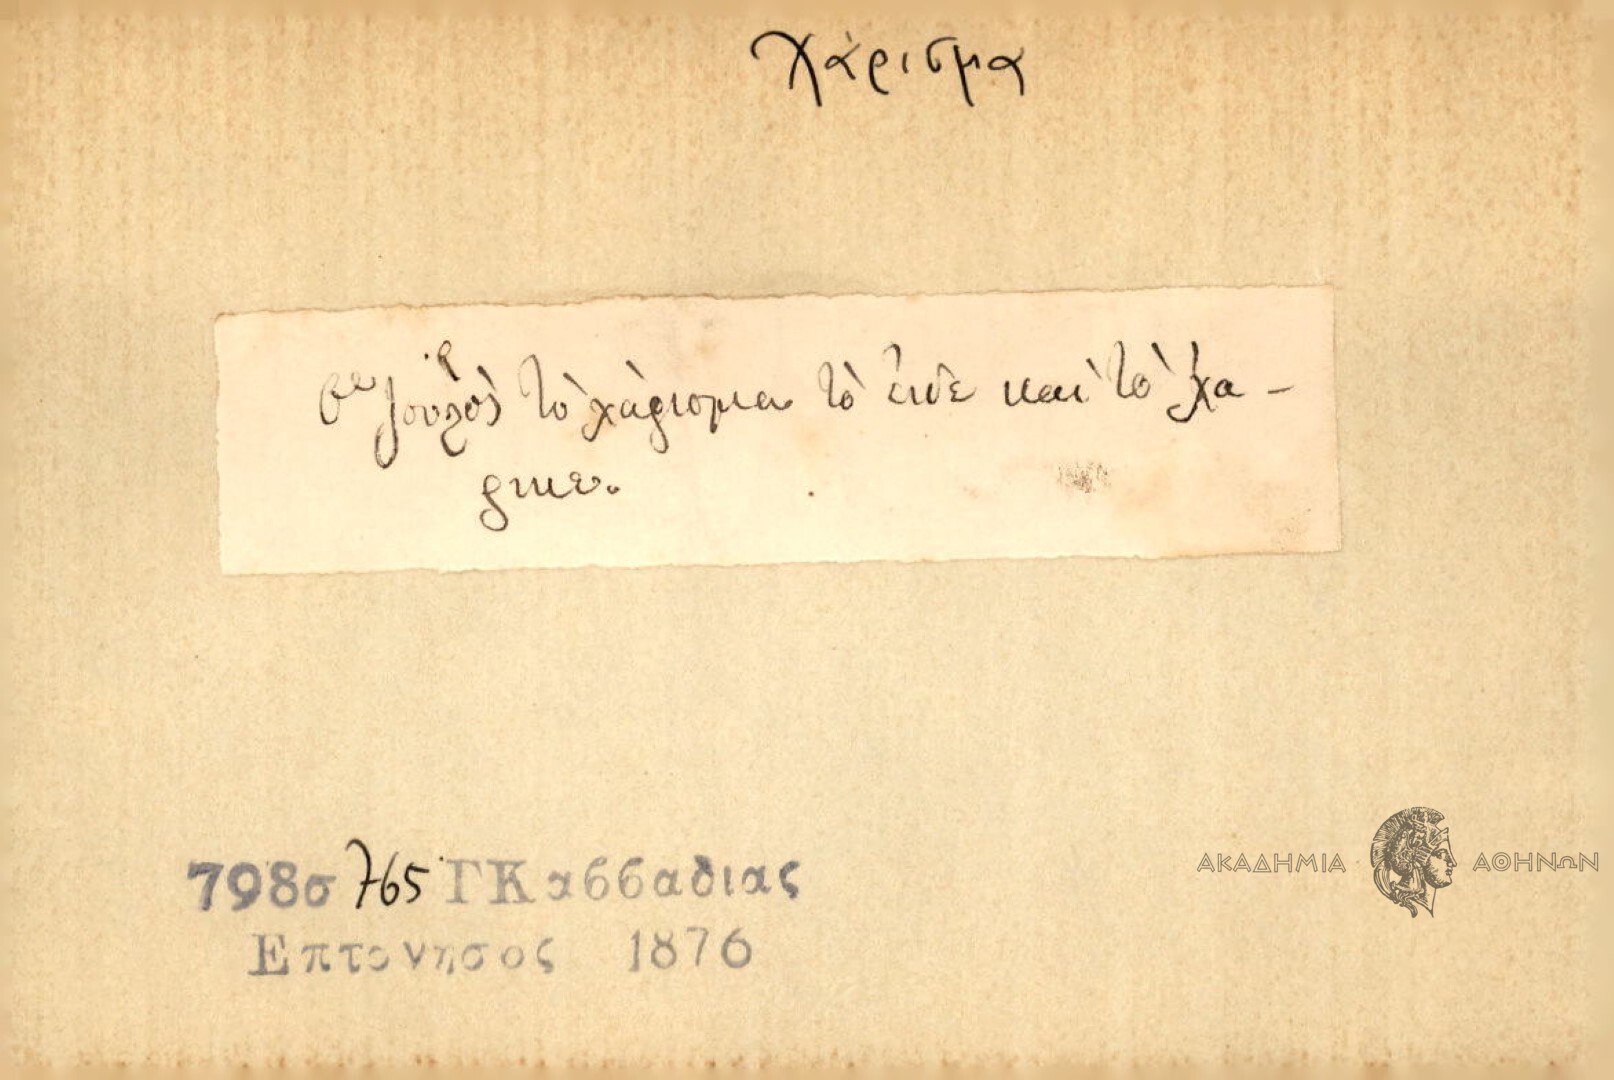 Χάρισμα
τὸ χάρισμα τὸ εἶδε καὶ τὸ χα-
ρικε.
798σ 765 ΓΚαββαδιας
Επτανησος 1876
ΑΚΑΔΗΜΙΑ ΑΘΗΝΩΝ